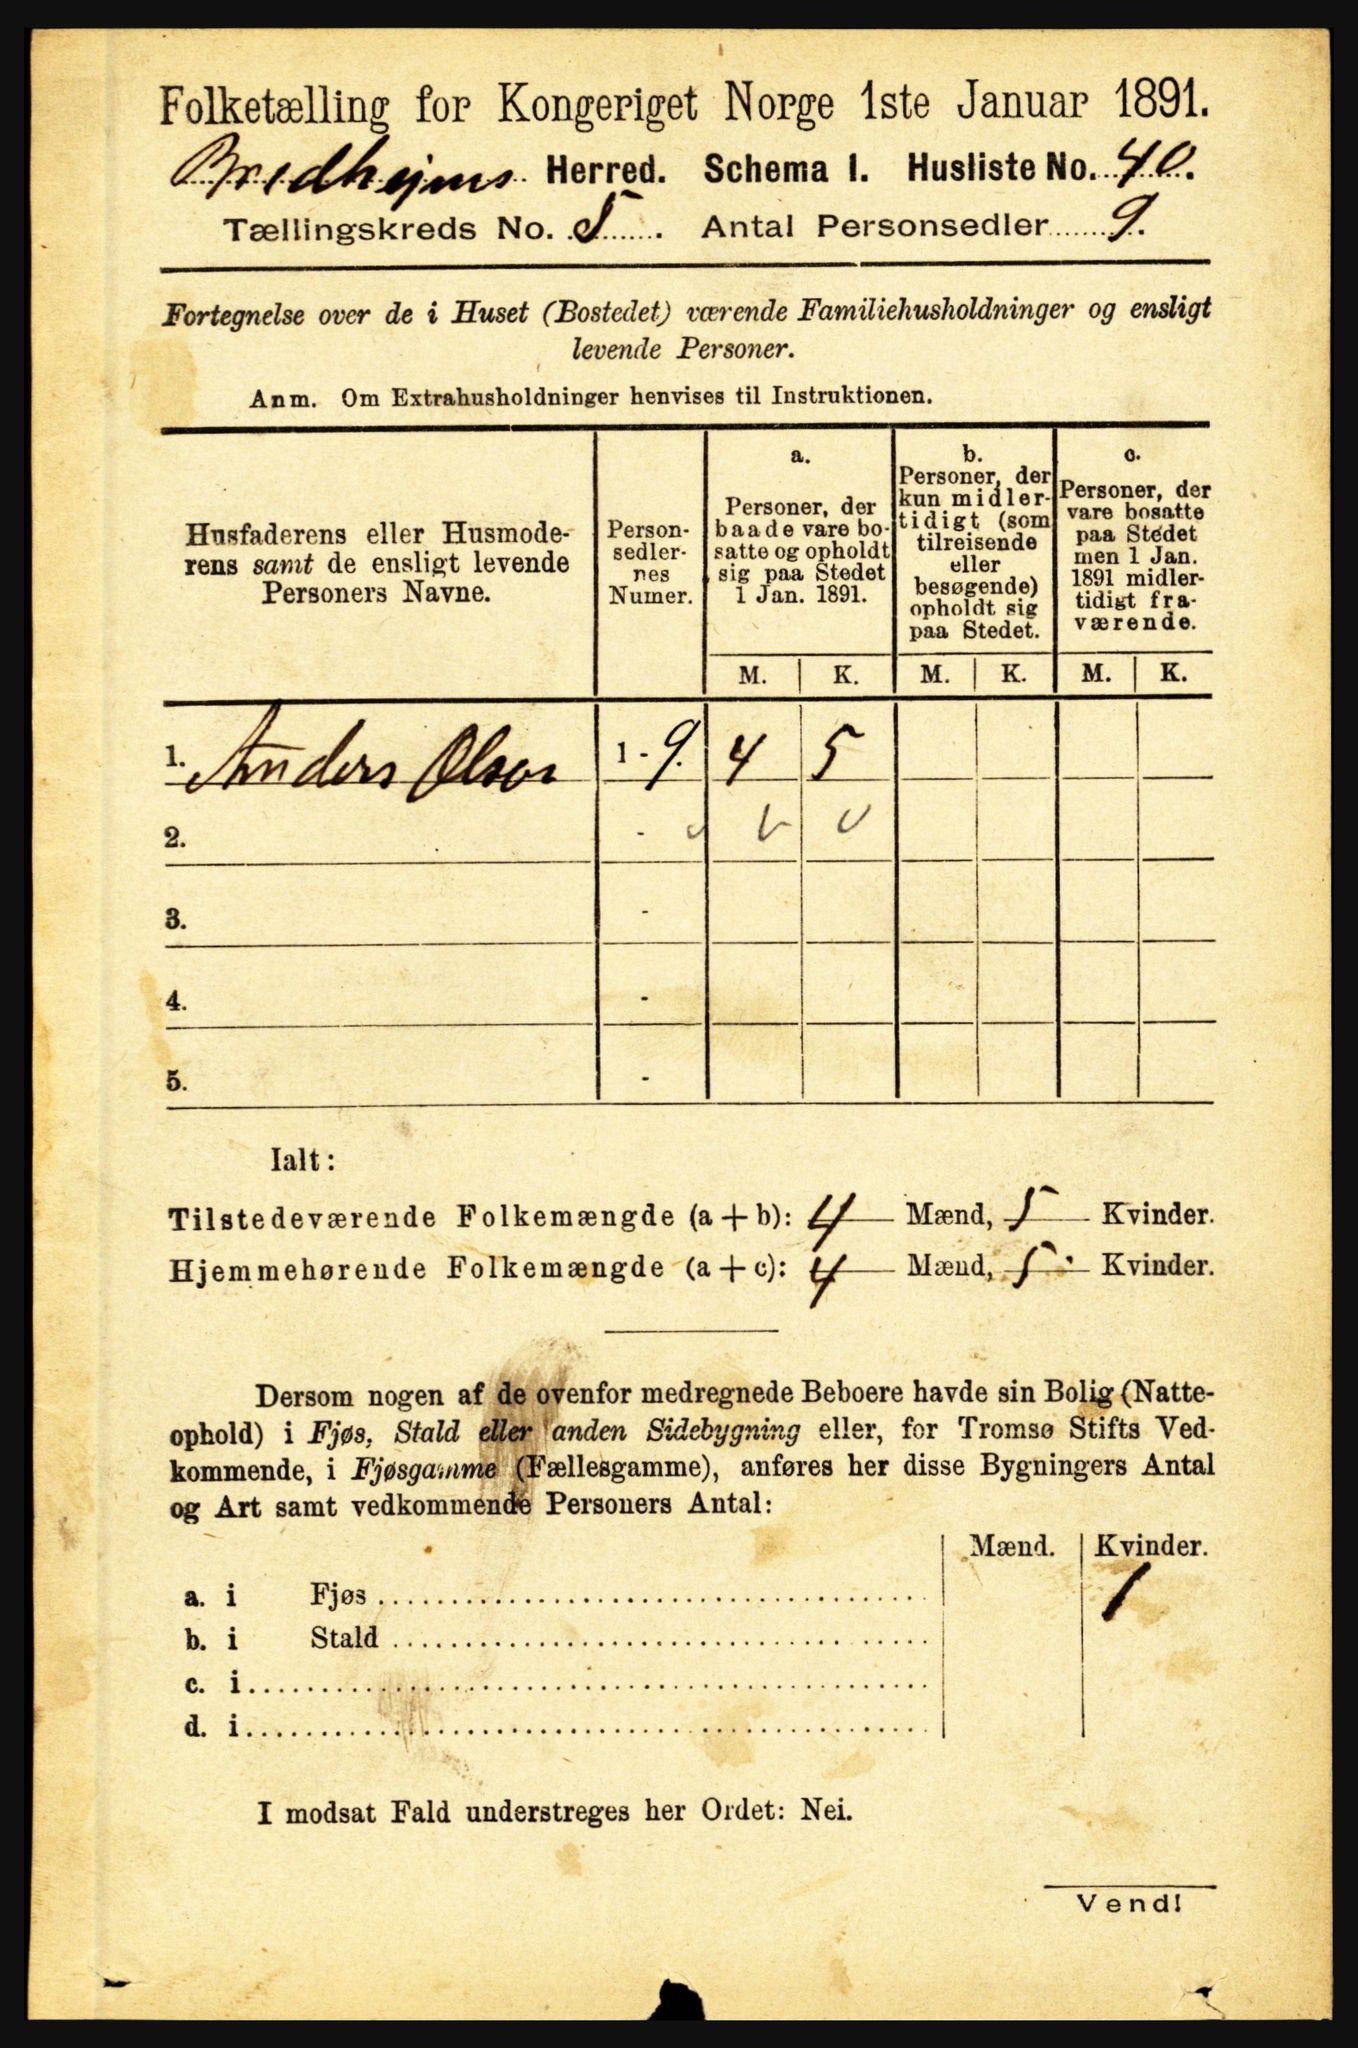 Folketælling for Kongeriget Norge 1ste Januar 1891.
Bredhejms Herred. Schema I. Husliste No. 40.
Tællingskreds No. 5. Antal Personsedler 9.
Fortegnelse over de i Huset (Bostedet) værende Familiehusholdninger og ensligt
levende Personer.
Anm. Om Extrahusholdninger henvises til Instruktionen.
Husfaderens eller Husmode-
rens samt de ensligt levende
Personers Navne.
Person-
sedler-
nes
Numer.
a.
Personer, der
baade vare bo-
satte og opholdt
sig paa Stedet
1 Jan. 1891.
b.
Personer, der
kun midler-
tidigt (som
tilreisende
eller
besøgende)
opholdt sig
paa Stedet.
c.
Personer, der
vare bosatte
paa Stedet
men 1 Jan.
1891 midler-
tidigt fra-
værende.
M. K. M. K. M. K.
1. Anders Olsen 1 - 9. 4 5
2. -
3. -
4. -
5. -
Ialt:
Tilstedeværende Folkemængde (a + b): 4 Mænd, 5 Kvinder.
Hjemmehørende Folkemængde (a + c): 4 Mænd, 5 Kvinder.
Dersom nogen af de ovenfor medregnede Beboere havde sin Bolig (Natte-
ophold) i Fjøs, Stald eller anden Sidebygning eller, for Tromsø Stifts Ved-
kommende, i Fjøsgamme (Fællesgamme), anføres her disse Bygningers Antal
og Art samt vedkommende Personers Antal:
Mænd. Kvinder.
a. i Fjøs 1
b. i Stald
c. i
d. i
I modsat Fald understreges her Ordet: Nei.
Vend!